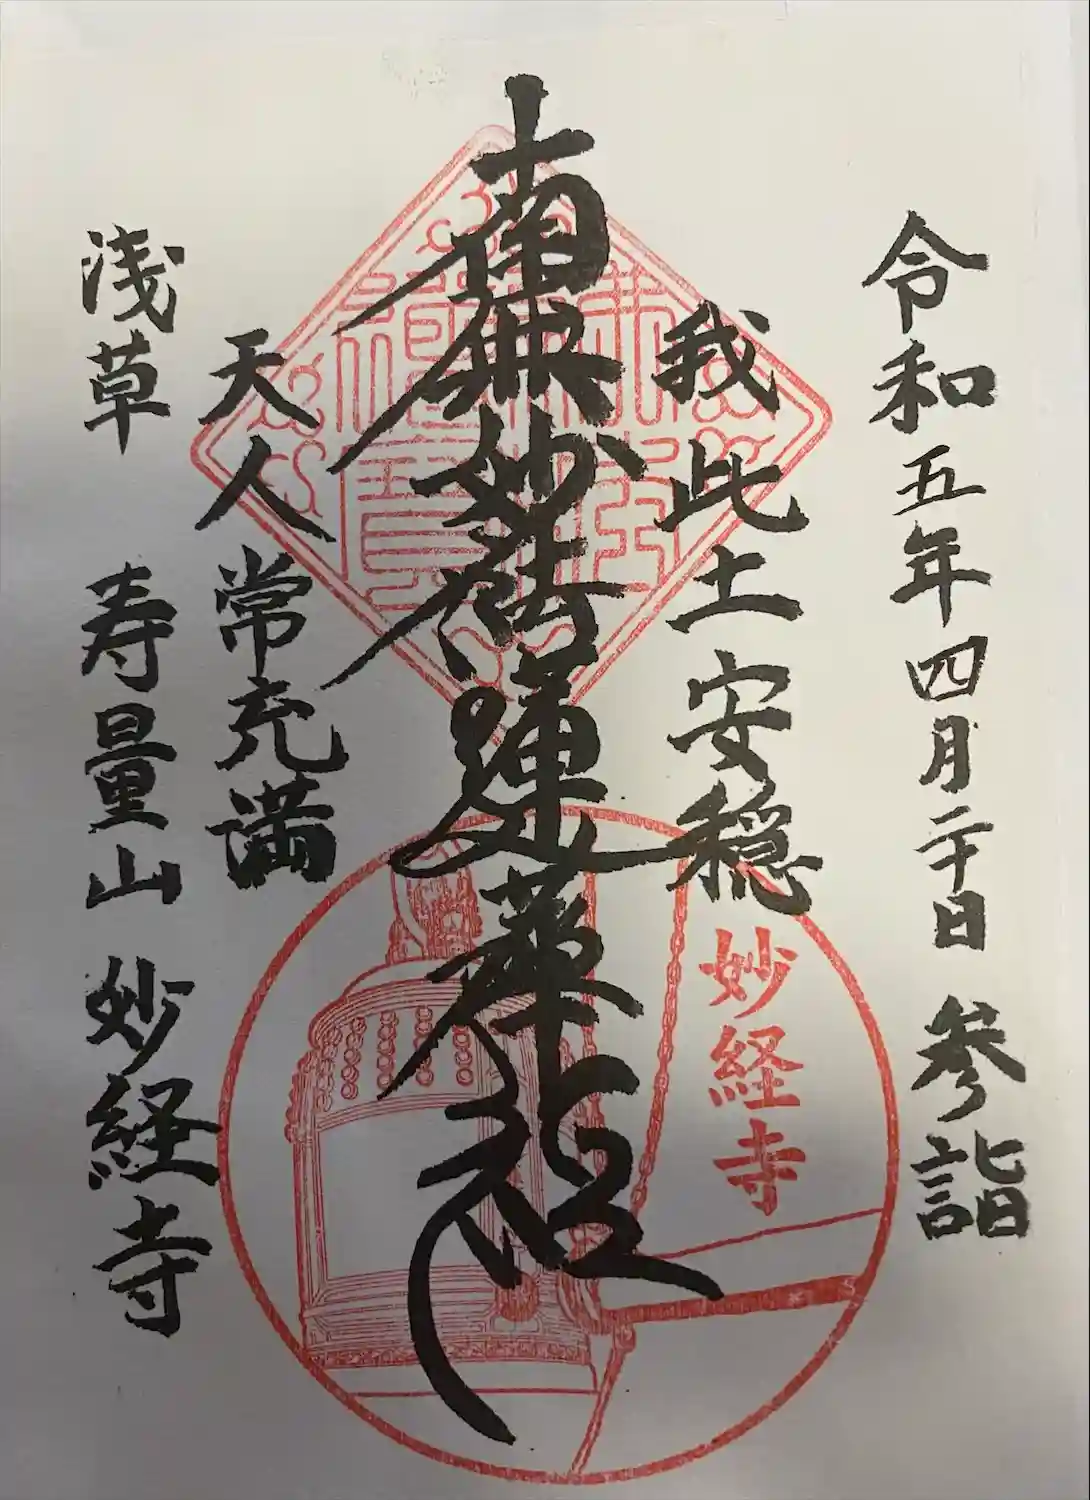 令和五年四月二十日 参詣
我此土安穏
南無妙法蓮華経
天人常充満
浅草 寿量山 妙経寺
妙経寺